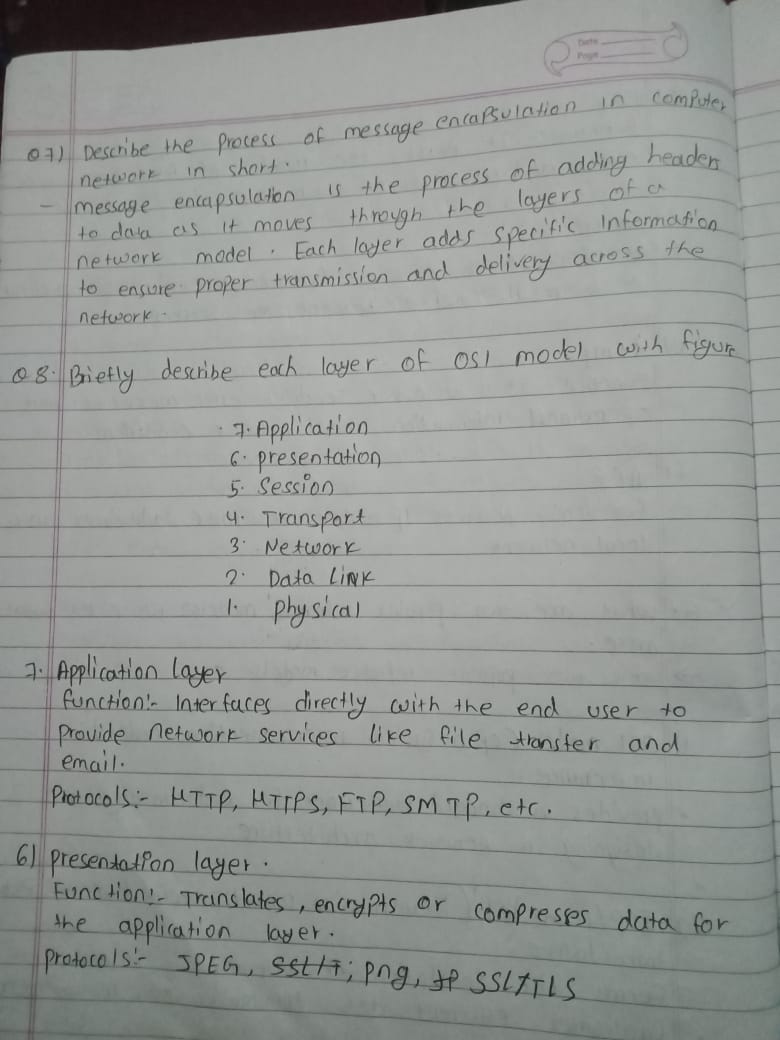 Date
Page
Q7) Describe the process of message encapsulation in computer
network in short.
- message encapsulation is the process of adding headers
to data as it moves through the layers of a
network model. Each layer adds specific information
to ensure proper transmission and delivery across the
network.
Q8. Briefly describe each layer of OSI model with figure
7. Application
6. presentation
5. Session
4. Transport
3. Network
2. Data Link
1. physical
7. Application layer
function:- Interfaces directly with the end user to
provide network services like file transfer and
email.
Protocols:- HTTP, HTTPS, FTP, SMTP, etc.
6) presentation layer.
Function:- Translates, encrypts or compresses data for
the application layer.
protocols:- JPEG, png, SSL/TLS